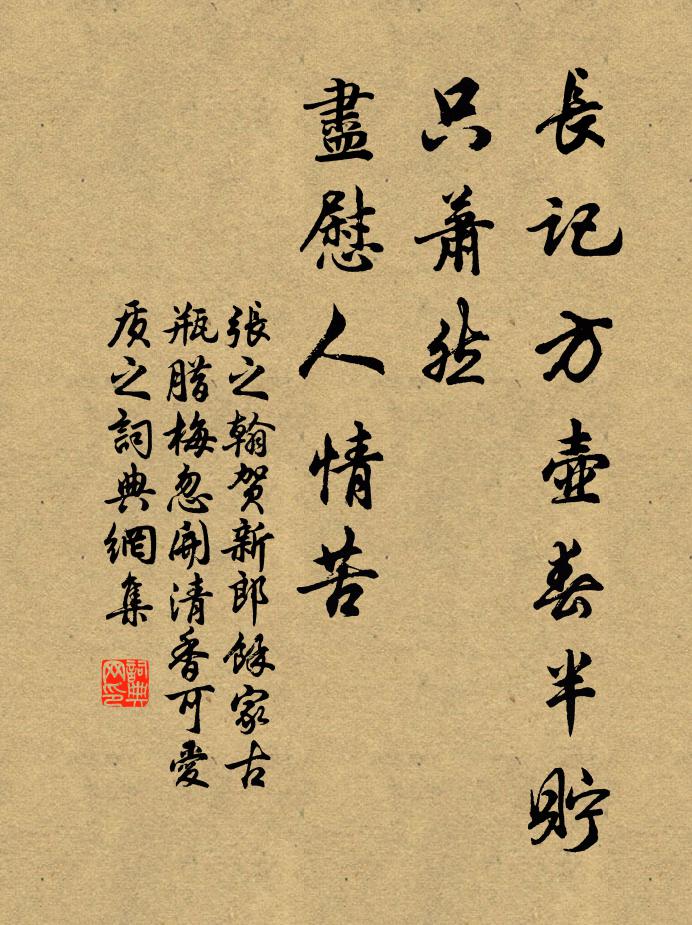 長記方壺春半貯
只蕭然
盡慰人情苦
張之翰賀新郎餘家古
瓶腊梅忽開清香可愛
质之詞典網集
詞典
网印